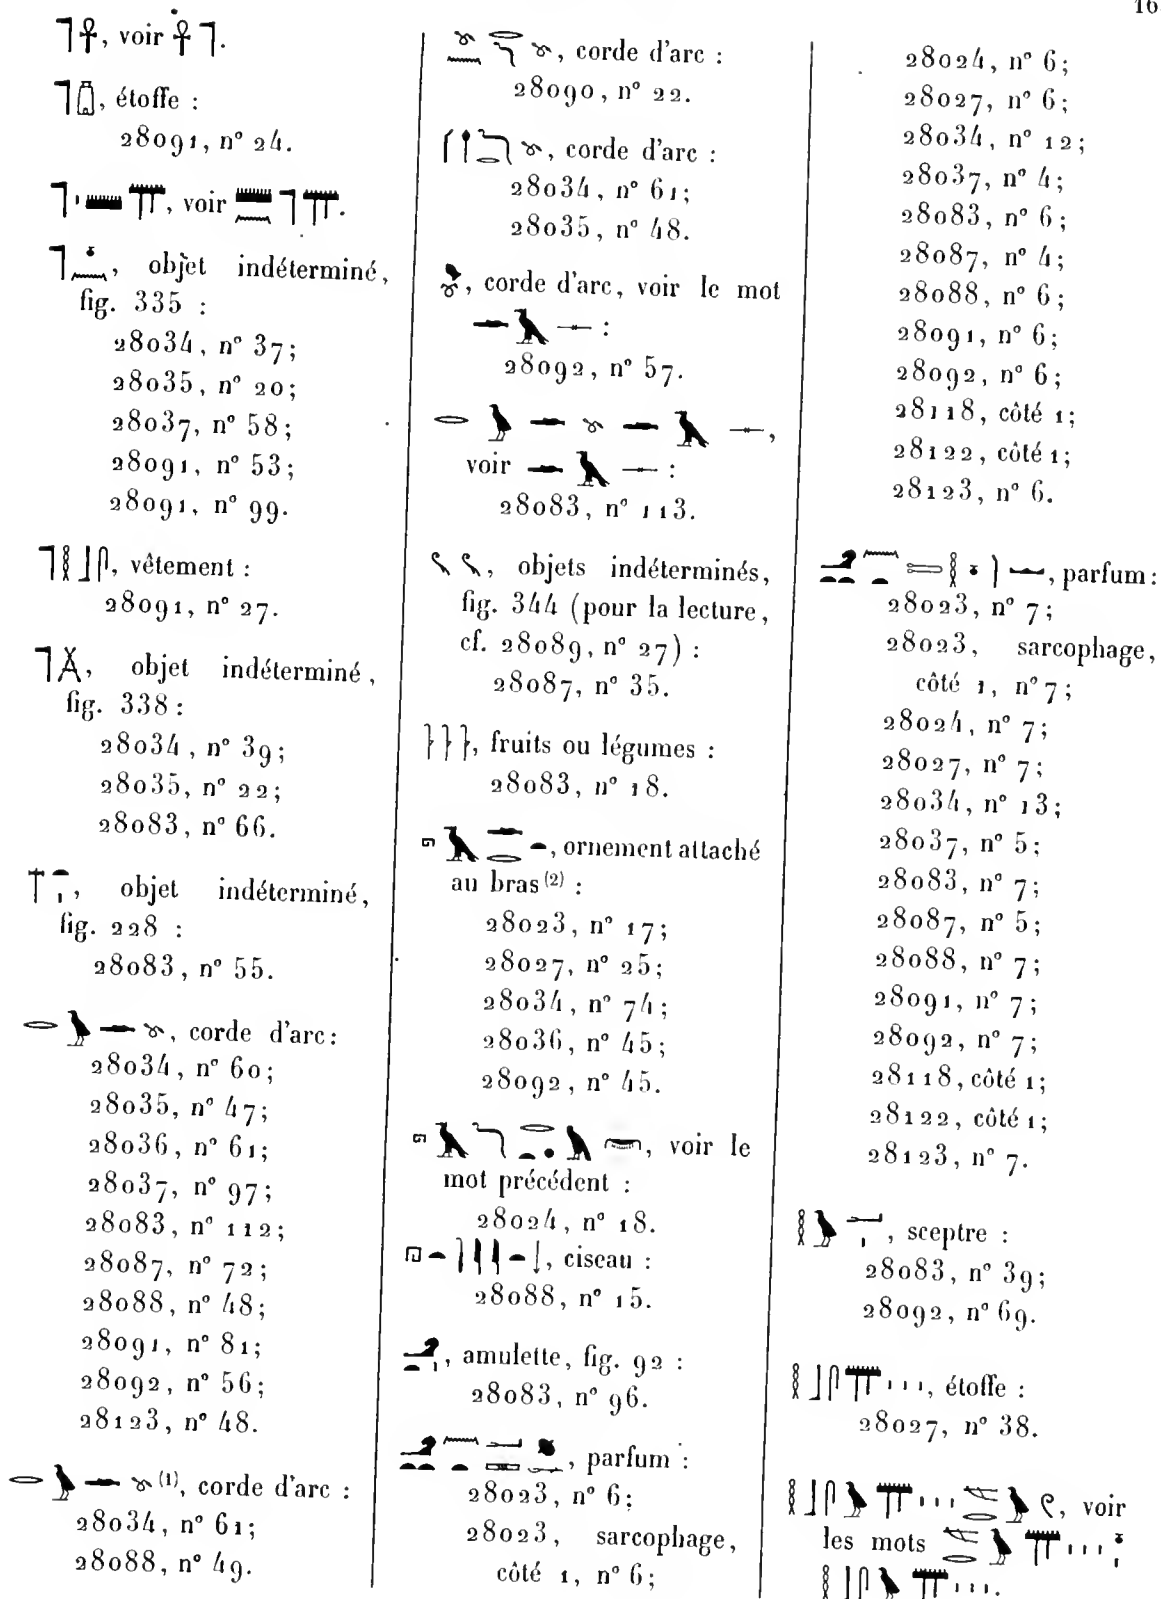 16
, voir .
, étoffe :
28091, n° 24.
, voir .
, objet indéterminé,
fig. 335 :
28034, n° 37;
28035, n° 20;
28037, n° 58;
28091, n° 53;
28091, n° 99.
, vêtement :
28091, n° 27.
, objet indéterminé,
fig. 338 :
28034, n° 39;
28035, n° 22;
28083, n° 66.
, objet indéterminé,
fig. 228 :
28083, n° 55.
, corde d'arc :
28034, n° 60;
28035, n° 47;
28036, n° 61;
28037, n° 97;
28083, n° 112;
28087, n° 72;
28088, n° 48;
28091, n° 81;
28092, n° 56;
28123, n° 48.
(1), corde d'arc :
28034, n° 61;
28088, n° 49.
, corde d'arc :
28090, n° 22.
, corde d'arc :
28034, n° 61;
28035, n° 48.
, corde d'arc, voir le mot
:
28092, n° 57.
,
voir :
28083, n° 113.
, objets indéterminés,
fig. 344 (pour la lecture,
cf. 28089, n° 27) :
28087, n° 35.
, fruits ou légumes :
28083, n° 18.
, ornement attaché
au bras (2) :
28023, n° 17;
28027, n° 25;
28034, n° 74;
28036, n° 45;
28092, n° 45.
, voir le
mot précédent :
28024, n° 18.
, ciseau :
28088, n° 15.
, amulette, fig. 92 :
28083, n° 96.
, parfum :
28023, n° 6;
28023, sarcophage,
côté 1, n° 6;
28024, n° 6;
28027, n° 6;
28034, n° 12;
28037, n° 4;
28083, n° 6;
28087, n° 4;
28088, n° 6;
28091, n° 6;
28092, n° 6;
28118, côté 1;
28122, côté 1;
28123, n° 6.
, parfum :
28023, n° 7;
28023, sarcophage,
côté 1, n° 7;
28024, n° 7;
28027, n° 7;
28034, n° 13;
28037, n° 5;
28083, n° 7;
28087, n° 5;
28088, n° 7;
28091, n° 7;
28092, n° 7;
28118, côté 1;
28122, côté 1;
28123, n° 7.
, sceptre :
28083, n° 39;
28092, n° 69.
, étoffe :
28027, n° 38.
, voir
les mots